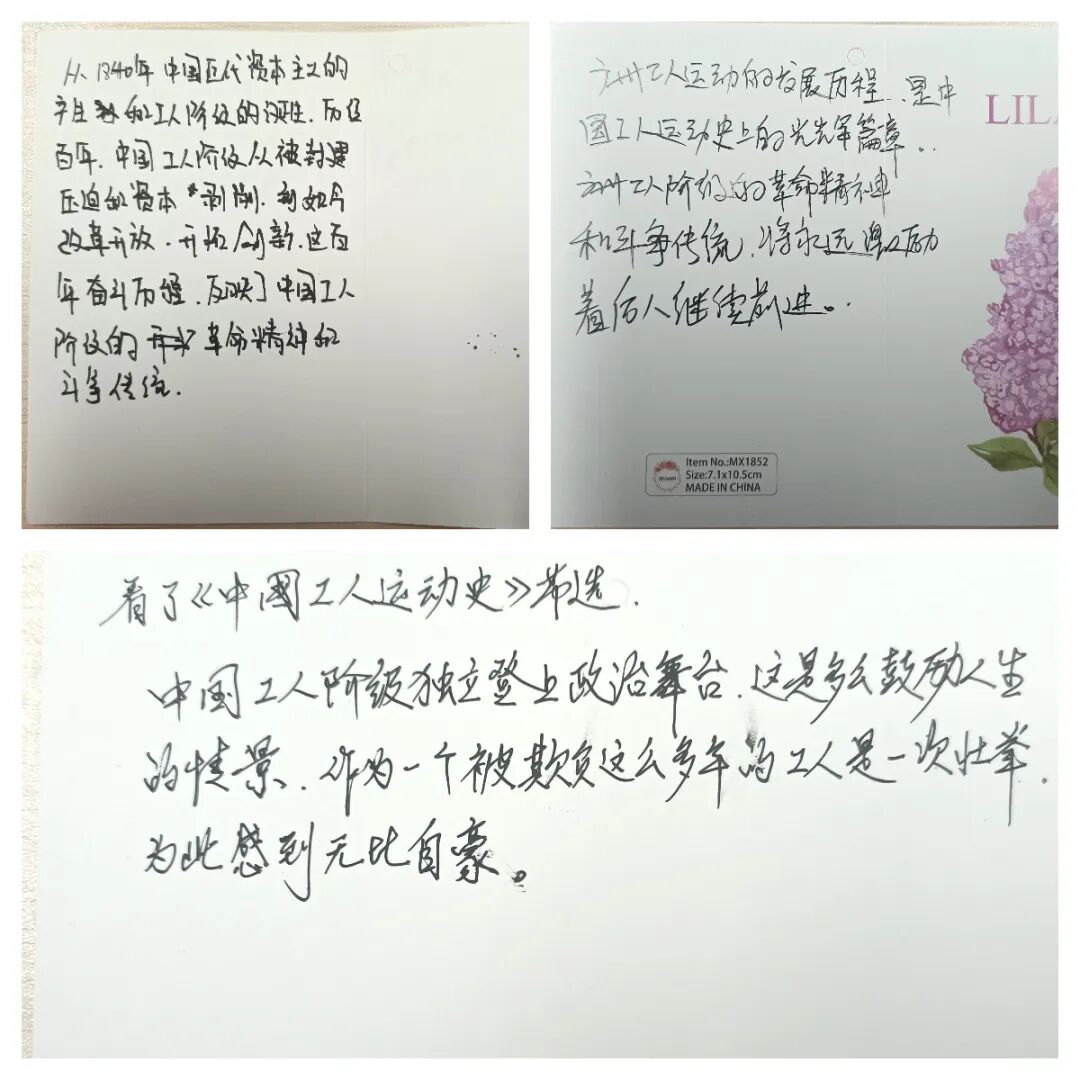 从1840年中国近代资本主义的
产生和工人阶级的诞生,历经
百年,中国工人阶级从被封建
压迫和资本剥削,到如今
改革开放,开拓创新,这百
年奋斗历程,反映了中国工人
阶级的革命精神和
斗争传统.
工人运动的发展历程,是中
国工人运动史上的光辉篇章.
工人阶级的革命精神
和斗争传统,将永远激励
着后人继续前进。
LIL
Item No.:MX1852
Size:7.1x10.5cm
MADE IN CHINA
看了《中國工人运动史》节选.
中国工人阶级独立登上政治舞台.这是多么鼓励人生
的情景.作为一个被欺负这么多年的工人是一次壮举.
为此感到无比自豪。